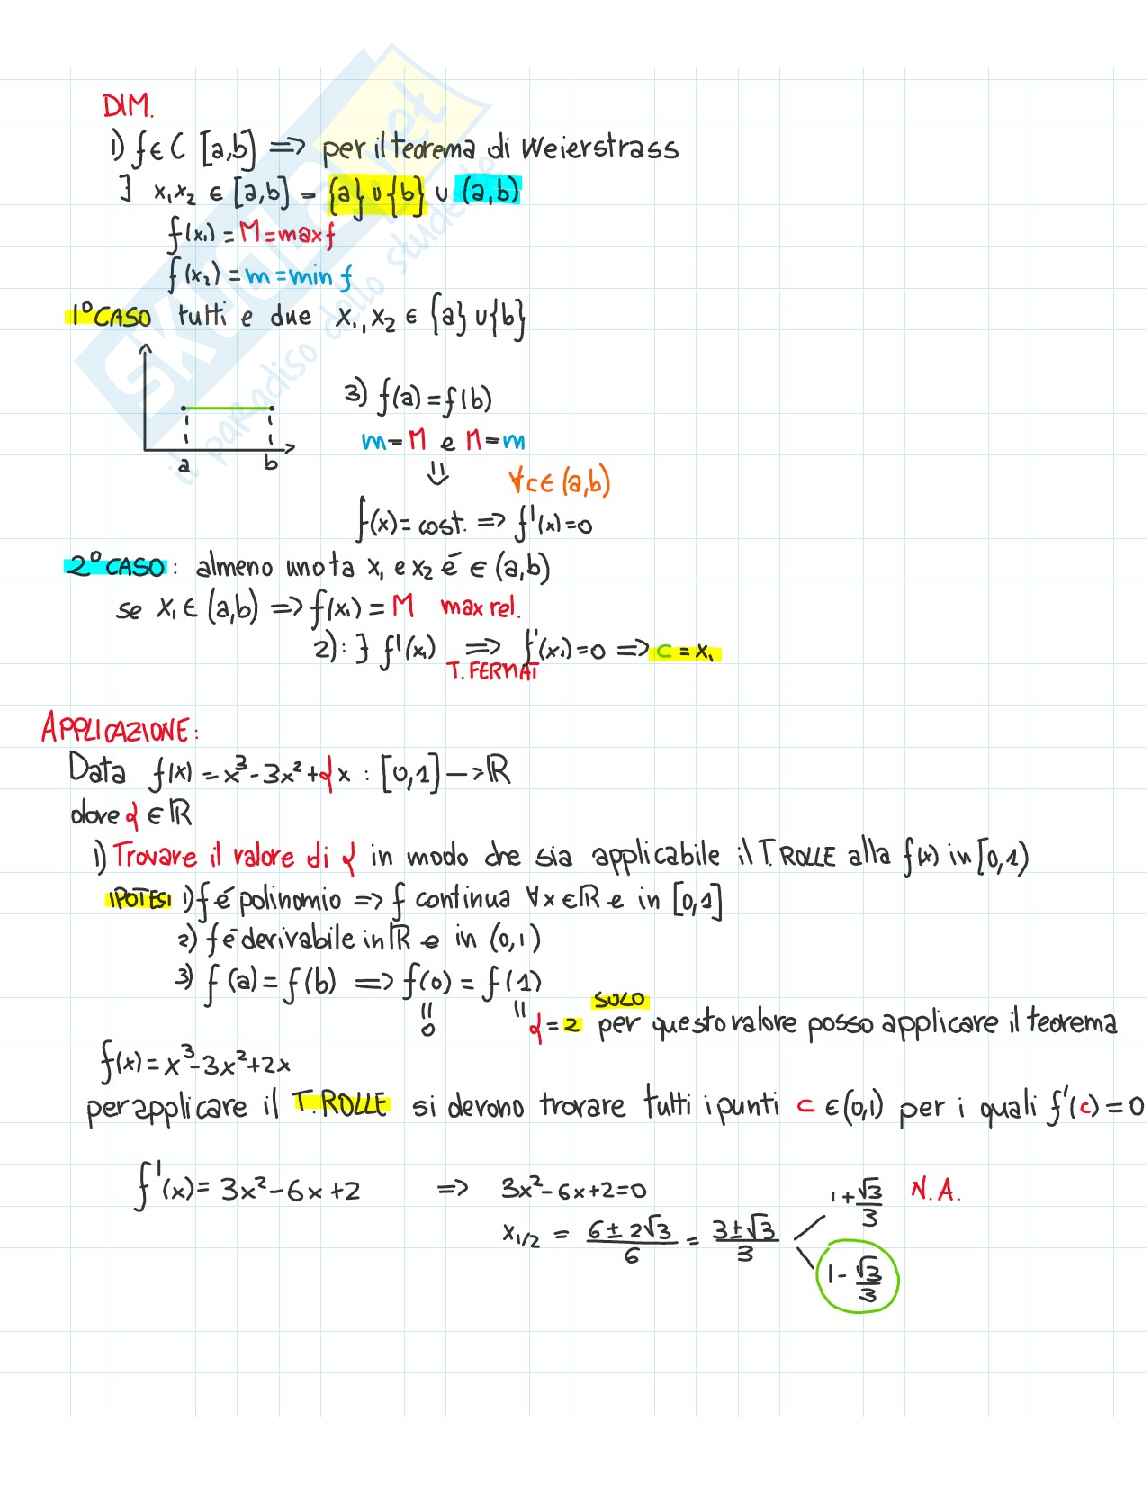 DIM.
1) f ∈ C [a,b] => per il teorema di Weierstrass
∃ x₁x₂ ∈ [a,b] = {a} ∪ {b} ∪ (a,b)
f(x₁) = M = max f
f(x₂) = m = min f
1° CASO tutti e due x₁, x₂ ∈ {a} ∪ {b}
3) f(a) = f(b)
m = M e M = m
a b
⇓ ∀c ∈ (a,b)
f(x) = cost. => f'(x) = 0
2° CASO: almeno uno ta x₁ e x₂ é ∈ (a,b)
se x₁ ∈ (a,b) => f(x₁) = M max rel.
2): ∃ f'(x₁) => f'(x₁) = 0 => c = x₁
T. FERMAT
APPLICAZIONE:
Data f(x) = x³ - 3x² + αx : [0,1] -> ℝ
dove α ∈ ℝ
1) Trovare il valore di α in modo che sia applicabile il T. ROLLE alla f(x) in [0,1)
IPOTESI 1) f é polinomio => f continua ∀x ∈ ℝ e in [0,1]
2) f é derivabile in ℝ e in (0,1)
3) f(a) = f(b) => f(0) = f(1)
SOLO
" "
0 α = 2 per questo valore posso applicare il teorema
f(x) = x³ - 3x² + 2x
per applicare il T. ROLLE si devono trovare tutti i punti c ∈ (0,1) per i quali f'(c) = 0
f'(x) = 3x² - 6x + 2 => 3x² - 6x + 2 = 0 1 + √3/3 N.A.
x₁/₂ = (6 ± 2√3)/6 = (3 ± √3)/3
1 - √3/3
SKUOLA.net
il paradiso dello studente